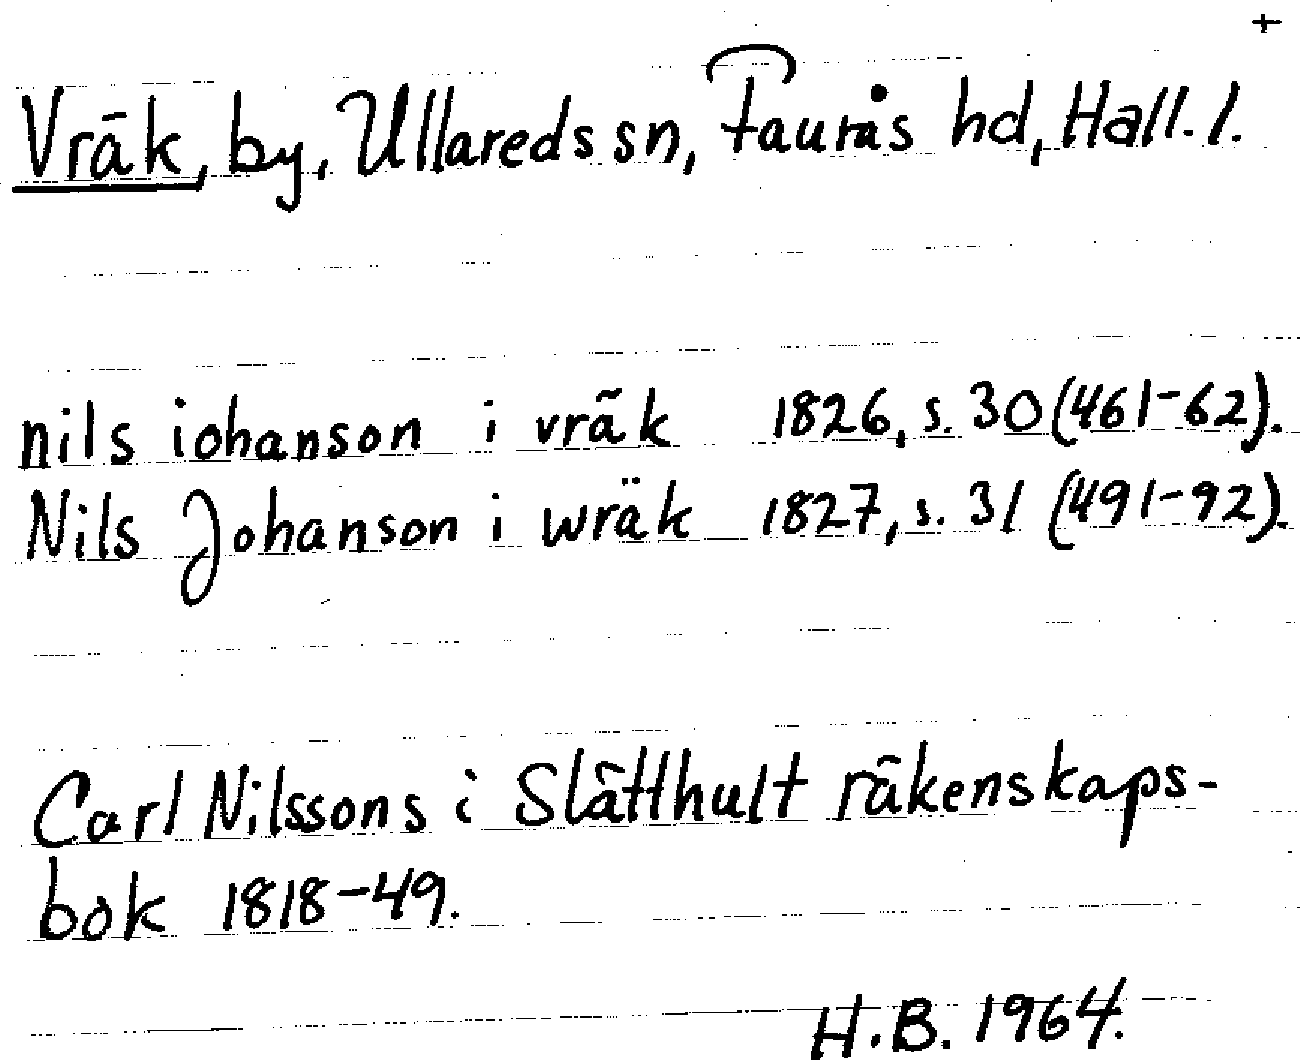 +
Vräk, by, Ullareds sn, Faurås hd, Hall. l.
nils iohanson i vräk 1826, s. 30 (461-62).
Nils Johanson i wräk 1827, s. 31 (491-92).
Carl Nilssons i Slätthult räkenskaps-
bok 1818-49.
H.B. 1964.